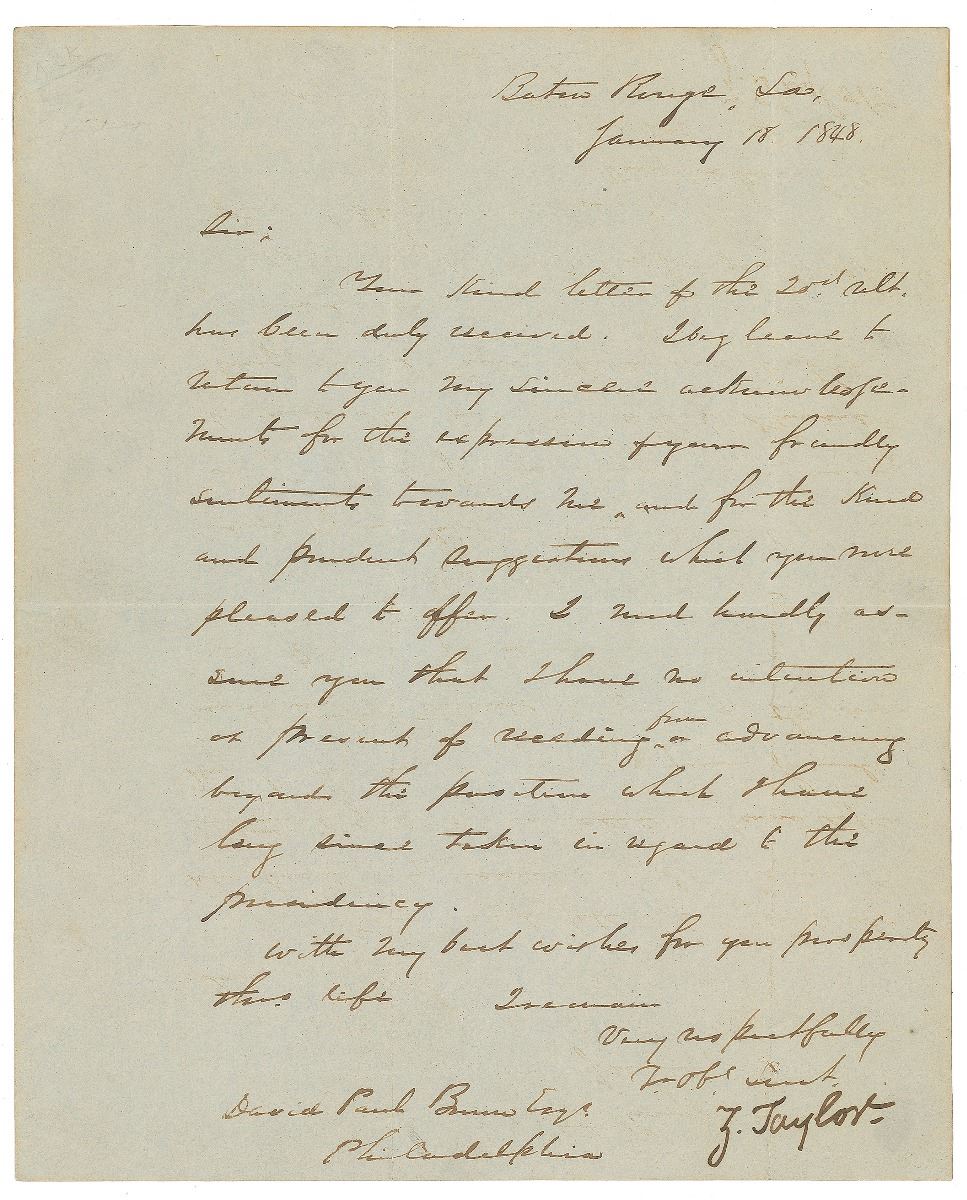 Baton Rouge, La,
January 18 1848.
Sir;
Your Kind letter of the 20th ult.
has been duly received. I beg leave to
return to you my sincere acknowledge-
ments for the expression of your friendly
sentiments towards me, and for the Kind
and prudent suggestions which you were
pleased to offer. I need hardly as-
sure you that I have no intention
at present of receding from or advancing
beyond the position which I have
long since taken in regard to the
presidency.
With my best wishes for your prosperity
thro. life I remain
Very respectfully
Yr. Obt. Servt.
Z. Taylor.
David Paul Brown Esqr.
Philadelphia